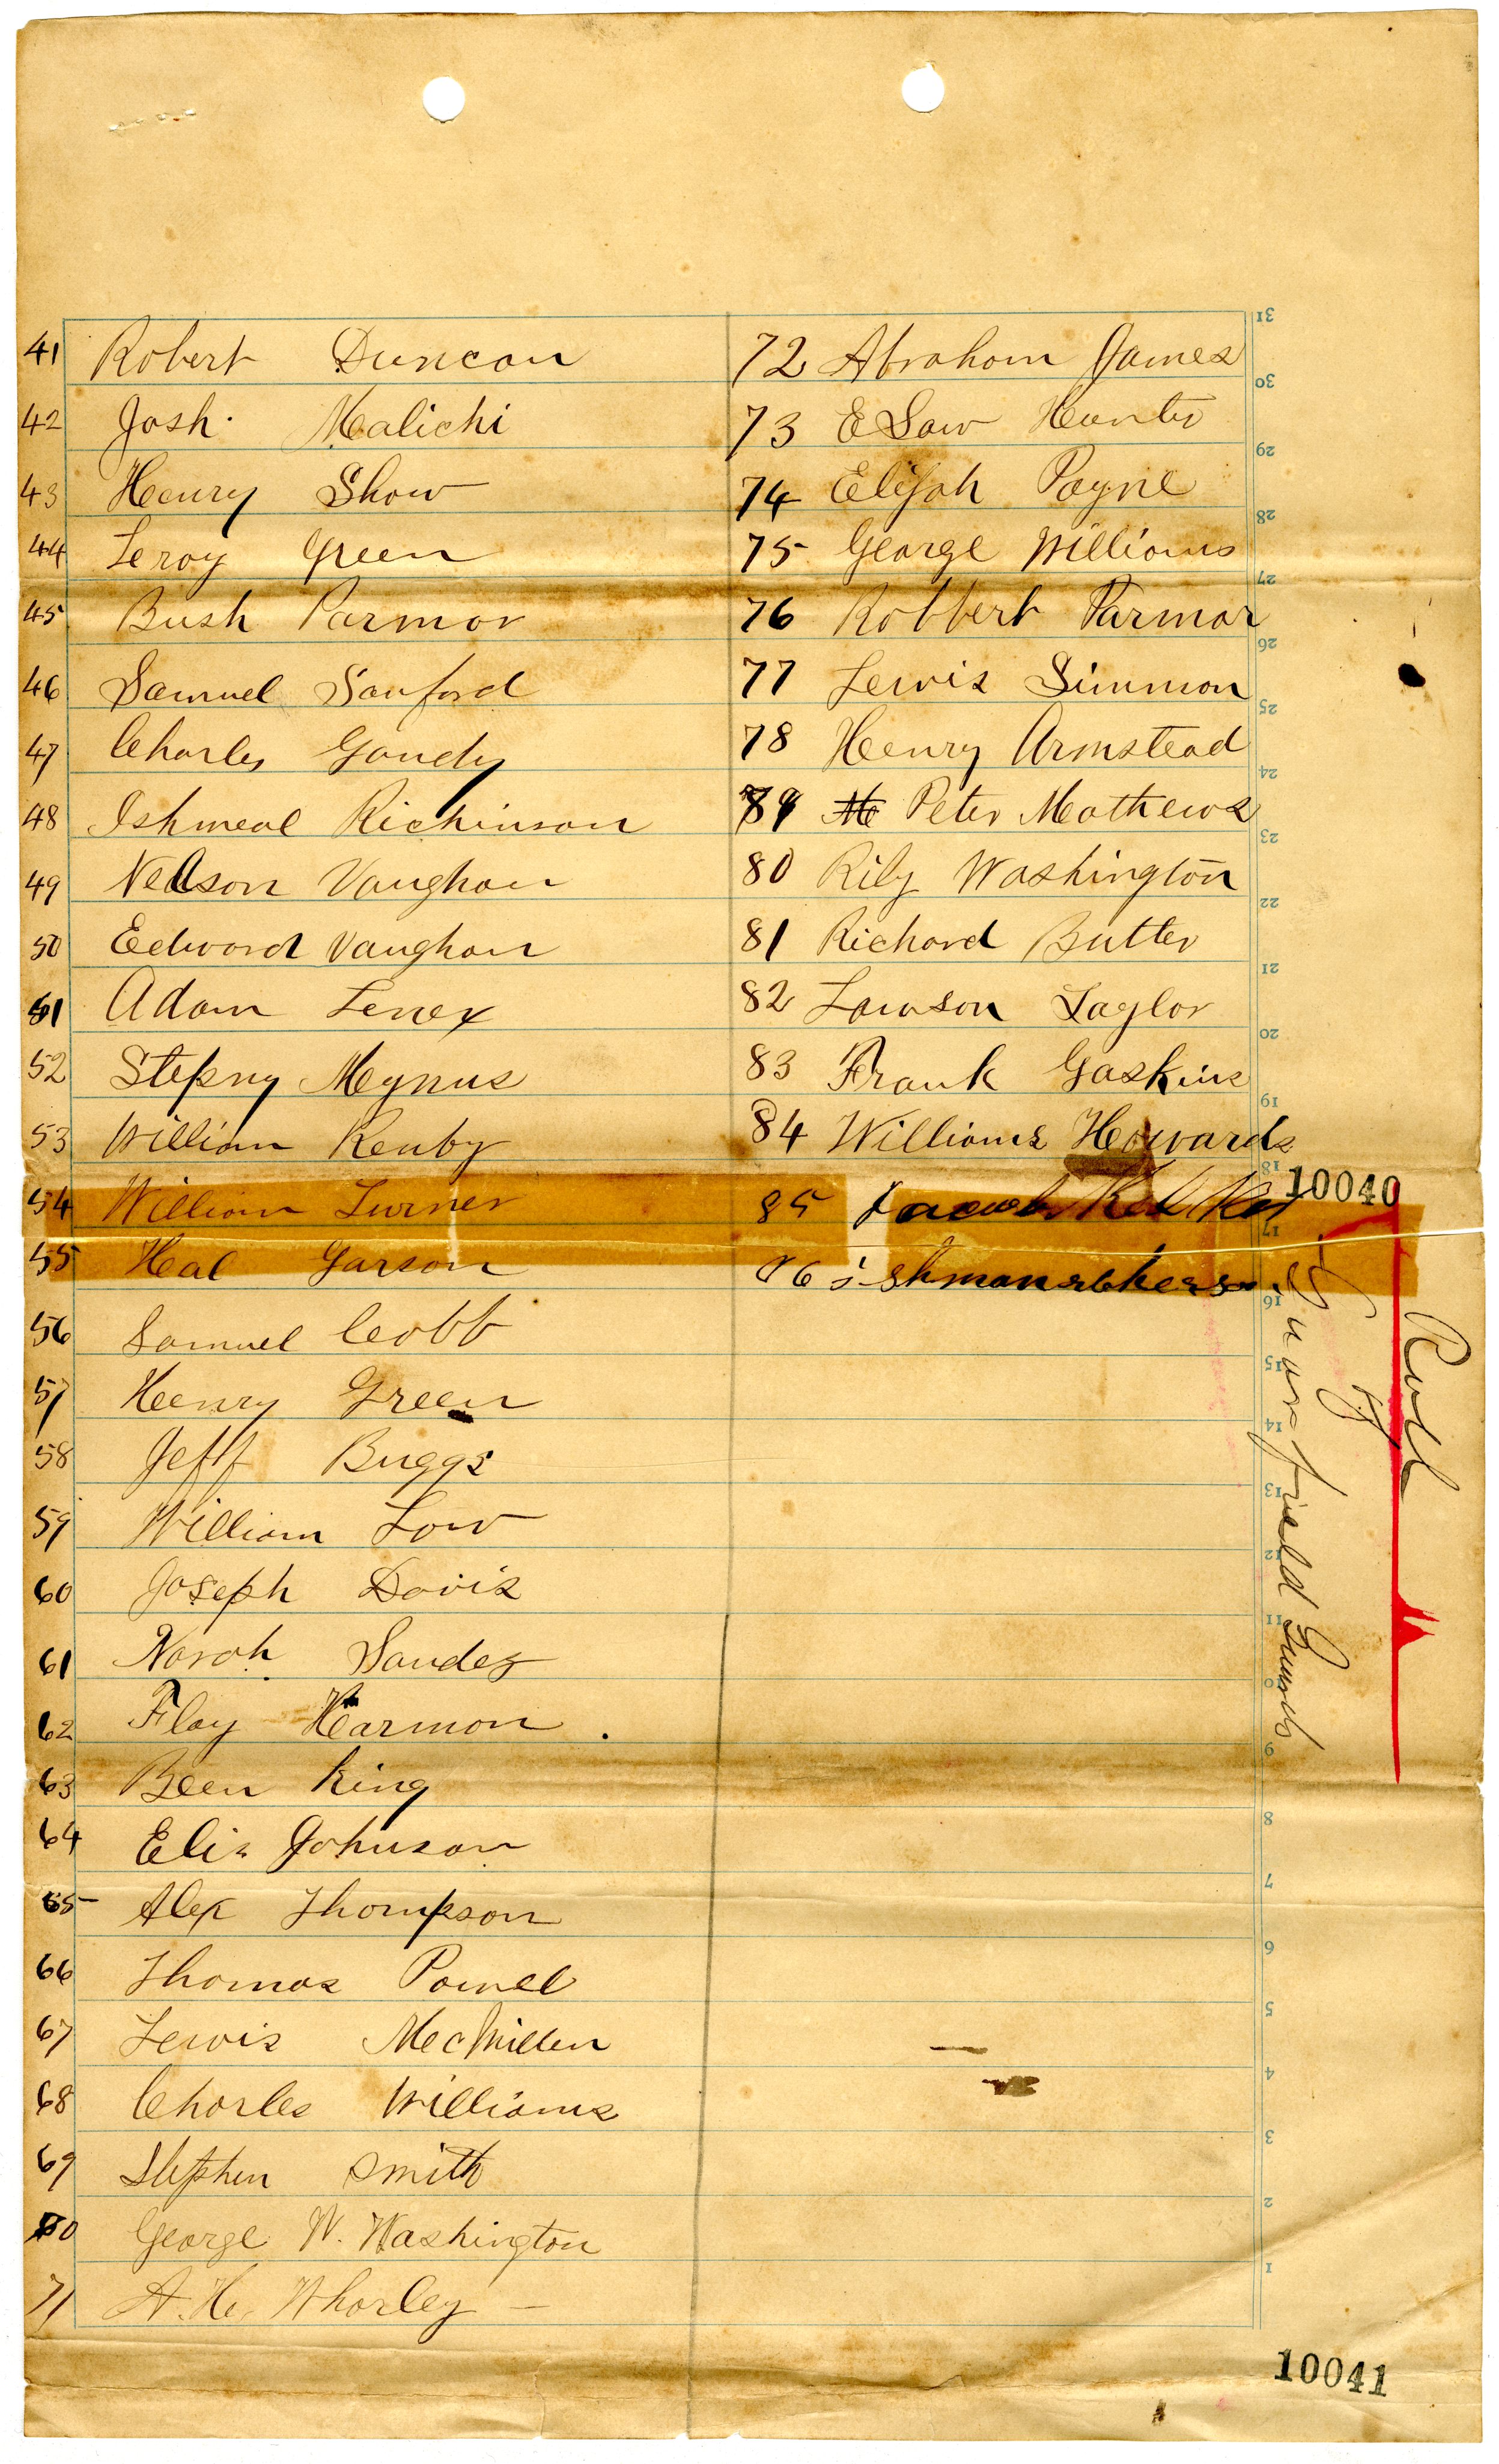 41 Robert Duncan
42 Josh. Malichi
43 Henry Show
44 Leroy Green
45 Bush Parmor
46 Samuel Sanford
47 Charles Gandy
48 Ishmeal Richinson
49 Nelson Vaughan
50 Edward Vaughan
51 Adam Lenex
52 Stepny Mynus
53 William Kenby
54 William Turner
55 Heal Garson
56 Samuel Cobb
57 Henry Green
58 Jeff Buggs
59 William Low
60 Joseph Davis
61 Narah Sandez
62 Flay Harmon .
63 Been King
64 Elis Johnson
65 Alex Thompson
66 Thomas Powel
67 Lewis MecMillen
68 Charles Williams
69 Stephen Smith
70 George W. Washington
71 A. H. Whorley –
72 Abraham James
73 ESaw Hunter
74 Elijah Payne
75 George Williams
76 Robbert Parmor
77 Lewis Simmon
78 Henry Armstead
79 Peter Mathews
80 Rily Washington
81 Richard Butler
82 Lawson Taylor
83 Frank Gaskins
84 Williams Howards
85 Jacob
86
31
30
29
28
27
26
25
24
23
22
21
20
19
18
17
16
15
14
13
12
11
10
9
8
7
6
5
4
3
2
1
10040
Roll
of
Guards
10041